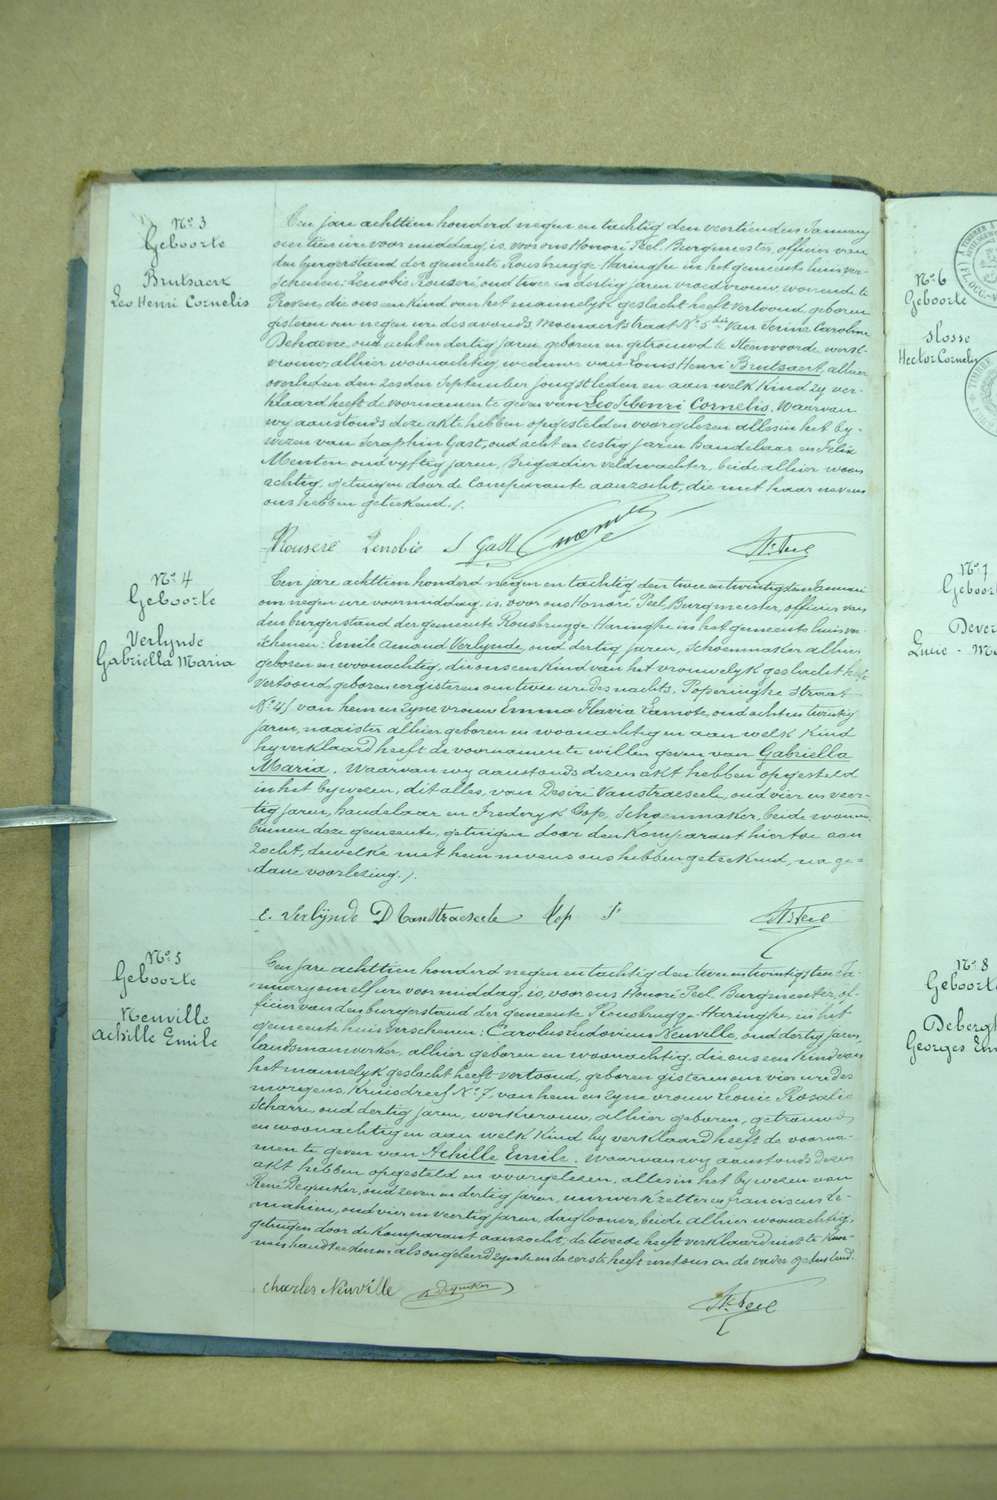 Nº 3
Geboorte
Brutsaert
Leo Henri Cornelis
Een jare achttien honderd negen en tachtig den veertienden January
om tien ure voormiddag, is voor ons Honoré Peel, Burgmeester, officier van
den burgerstand der gemeente Rousbrugge-Haringhe in het gemeentehuis ver-
schenen: Zenobie Rouseré, oud twee en dertig jaren vroedvrouw, wonende te
Proven, die ons een kind van het mannelyk geslacht heeft vertoond, geboren
gisteren om negen ure des avonds, Moenaertstraat Nº 5 van Caroline
Dehaene, oud acht en dertig jaren geboren en getrouwd te Steenvoorde, werk-
vrouw, alhier woonachtig, weduwe van Louis Henri Brutsaert, alhier
overleden den zesden September jongstleden en aan welk kind zy ver-
klaard heeft de voornamen te geven van Leo Henri Cornelis. Waarvan
wy aanstonds deze akte hebben opgesteld en voorgelezen alles in het by-
wezen van Seraphin Gast, oud acht en zestig jaren handelaar en Felix
Menten oud vyftig jaren, Brigadier veldwachter, beide alhier woon-
achtig, getuigen door de Comparante aanzocht, die met haar nevens
ons hebben geteekend./.
Rouseré Zenobie S. Gast Hre Peel
Nº 4
Geboorte
Verlynde
Gabriella Maria
Een jare achttien honderd negen en tachtig den twee en twintigsten January
om negen ure voormiddag, is voor ons Honoré Peel, Burgmeester, officier van
den burgerstand der gemeente Rousbrugge-Haringhe in het gemeentehuis ver-
schenen: Emile Amond Verlynde, oud dertig jaren, schoenmaker alhier
geboren en woonachtig, die ons een kind van het vrouwelyk geslacht heeft
vertoond, geboren eergisteren om twee ure des nachts, Poperinghe straat
Nº 41 van hem en zyne vrouw Emma Flavia Lamote, oud acht en twintig
jaren, naaister alhier geboren en woonachtig en aan welk kind
hy verklaard heeft de voornamen te willen geven van Gabriella
Maria. Waarvan wy aanstonds dezen akt hebben opgesteld
in het bywezen, dit alles, van Desiré Vanstraeseele, oud vier en veer-
tig jaren, handelaar en Frederyk Cop, schoenmaker, beide wonen
binnen deze gemeente, getuigen door den Komparant hiertoe aan
zocht, dewelke met hem nevens ons hebben geteekend, na ge-
dane voorlezing./.
E. Verlynde D Vanstraeseele Cop F Hre Peel
Nº 5
Geboorte
Neuville
Achille Emile
Een jare achttien honderd negen en tachtig den twee en twintigsten Ja-
nuary om elf ure voormiddag, is voor ons Honoré Peel, Burgmeester, of-
ficier van den burgerstand der gemeente Rousbrugge-Haringhe, in het
gemeentehuis verschenen: Carolus Ludovicus Neuville, oud dertig jaren,
landsmanwerker, alhier geboren en woonachtig, die ons een kind van
het mannelyk geslacht heeft vertoond, geboren gisteren om vier ure des
morgens, Kruisdreef Nº 7, van hem en zyne vrouw Leonie Rosalie
Scharre, oud dertig jaren, werkvrouw, alhier geboren, getrouwd
en woonachtig en aan welk kind hy verklaard heeft de voorna-
men te geven van Achille Emile. Waarvan wy aanstonds dezen
akt hebben opgesteld en voorgelezen, alles in het bywezen van
René Dequeker, oud zeven en dertig jaren, uurwerkzetter en Franciscus Le-
mahieu, oud vier en veertig jaren, daglooner, beide alhier woonachtig,
getuigen door de Komparant aanzocht, de tweede heeft verklaard niet te kun-
nen handteekenen als ongeleerd zynde en de eerste heeft met ons en de vader geteekend.
Charles Neuville R Dequeker Hre Peel
Nº 6
Geboorte
Slosse
Hector Cornely
Nº 7
Geboor
Dever
Lucie - M
Nº 8
Geboort
Debergh
Georges Em